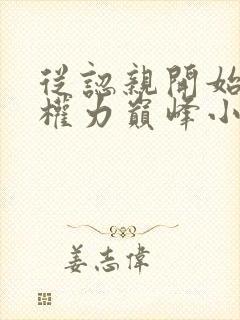 從認親開始
權力巔峰小
姜志偉